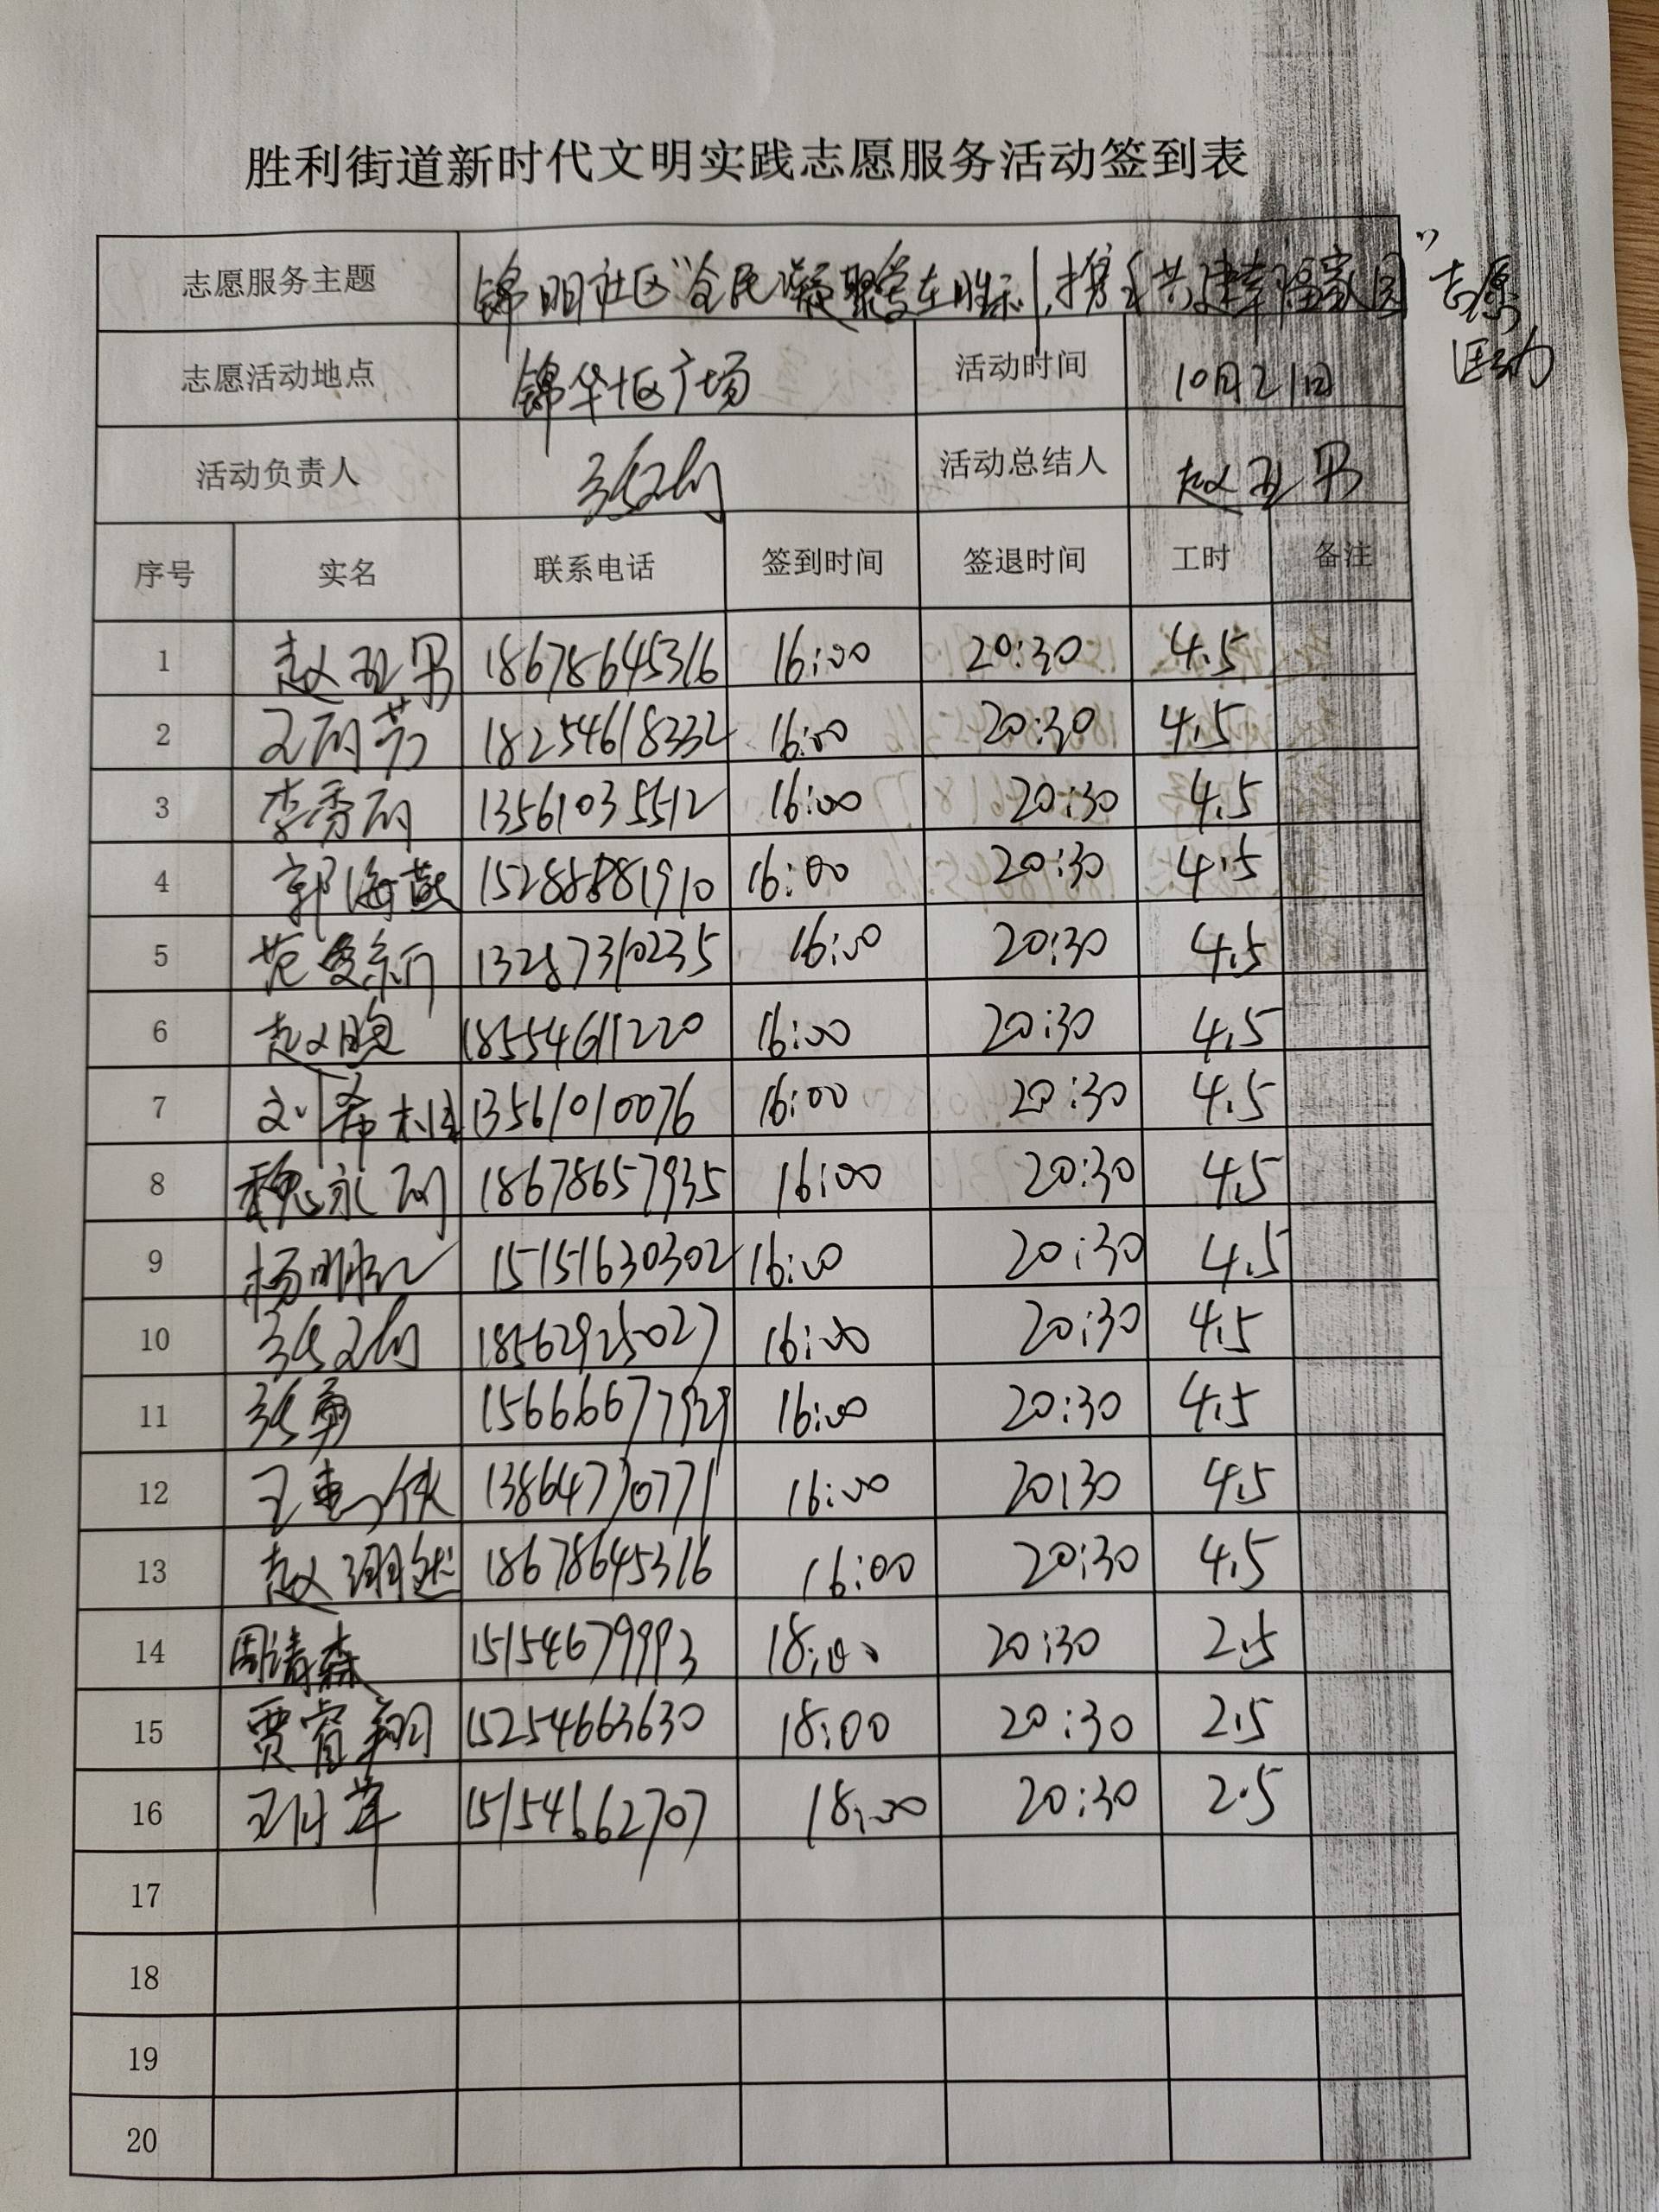 胜利街道新时代文明实践志愿服务活动签到表
志愿服务主题 锦明社区“全民凝聚爱在胜利,携手共建幸福家园”志愿活动
志愿活动地点 锦华七区广场 活动时间 10月21日
活动负责人 张文丽 活动总结人 赵亚男
序号 实名 联系电话 签到时间 签退时间 工时 备注
1 赵亚男 18678645316 16:00 20:30 4.5
2 王丽芳 18254618332 16:00 20:30 4.5
3 李秀丽 13561035512 16:00 20:30 4.5
4 郭海燕 15288881910 16:00 20:30 4.5
5 范爱新 13287310235 16:00 20:30 4.5
6 赵晓 18554611220 16:00 20:30 4.5
7 刘希桂 13561010076 16:00 20:30 4.5
8 魏永丽 18678657935 16:00 20:30 4.5
9 杨明 15151630302 16:00 20:30 4.5
10 张文丽 18562925027 16:00 20:30 4.5
11 张勇 15666677929 16:00 20:30 4.5
12 王 13864770771 16:00 20:30 4.5
13 赵翊然 18678645316 16:00 20:30 4.5
14 周清森 15154679993 18:00 20:30 2.5
15 贾睿翔 15254663630 18:00 20:30 2.5
16 王 15154662707 18:00 20:30 2.5
17
18
19
20